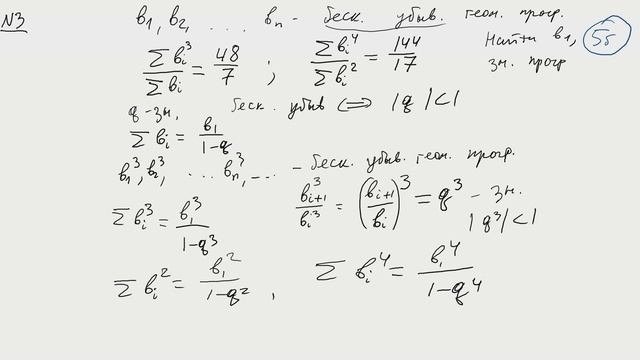 N3 b₁, b₂, .... bₙ - беск. убыв. геом. прогр.
∑bᵢ³/∑bᵢ = 48/7 ; ∑bᵢ⁴/∑bᵢ² = 144/17 Найти b₁, 5б
зн. прогр
q-зн. беск. убыв <=> |q|<1
∑bᵢ = b₁/(1-q)
b₁³, b₂³, .... bₙ³, ... - беск. убыв. геом. прогр.
∑bᵢ³ = b₁³/(1-q³) bᵢ₊₁³/bᵢ³ = (bᵢ₊₁/bᵢ)³ = q³ - зн.
|q³|<1
∑bᵢ² = b₁²/(1-q²) , ∑bᵢ⁴ = b₁⁴/(1-q⁴)